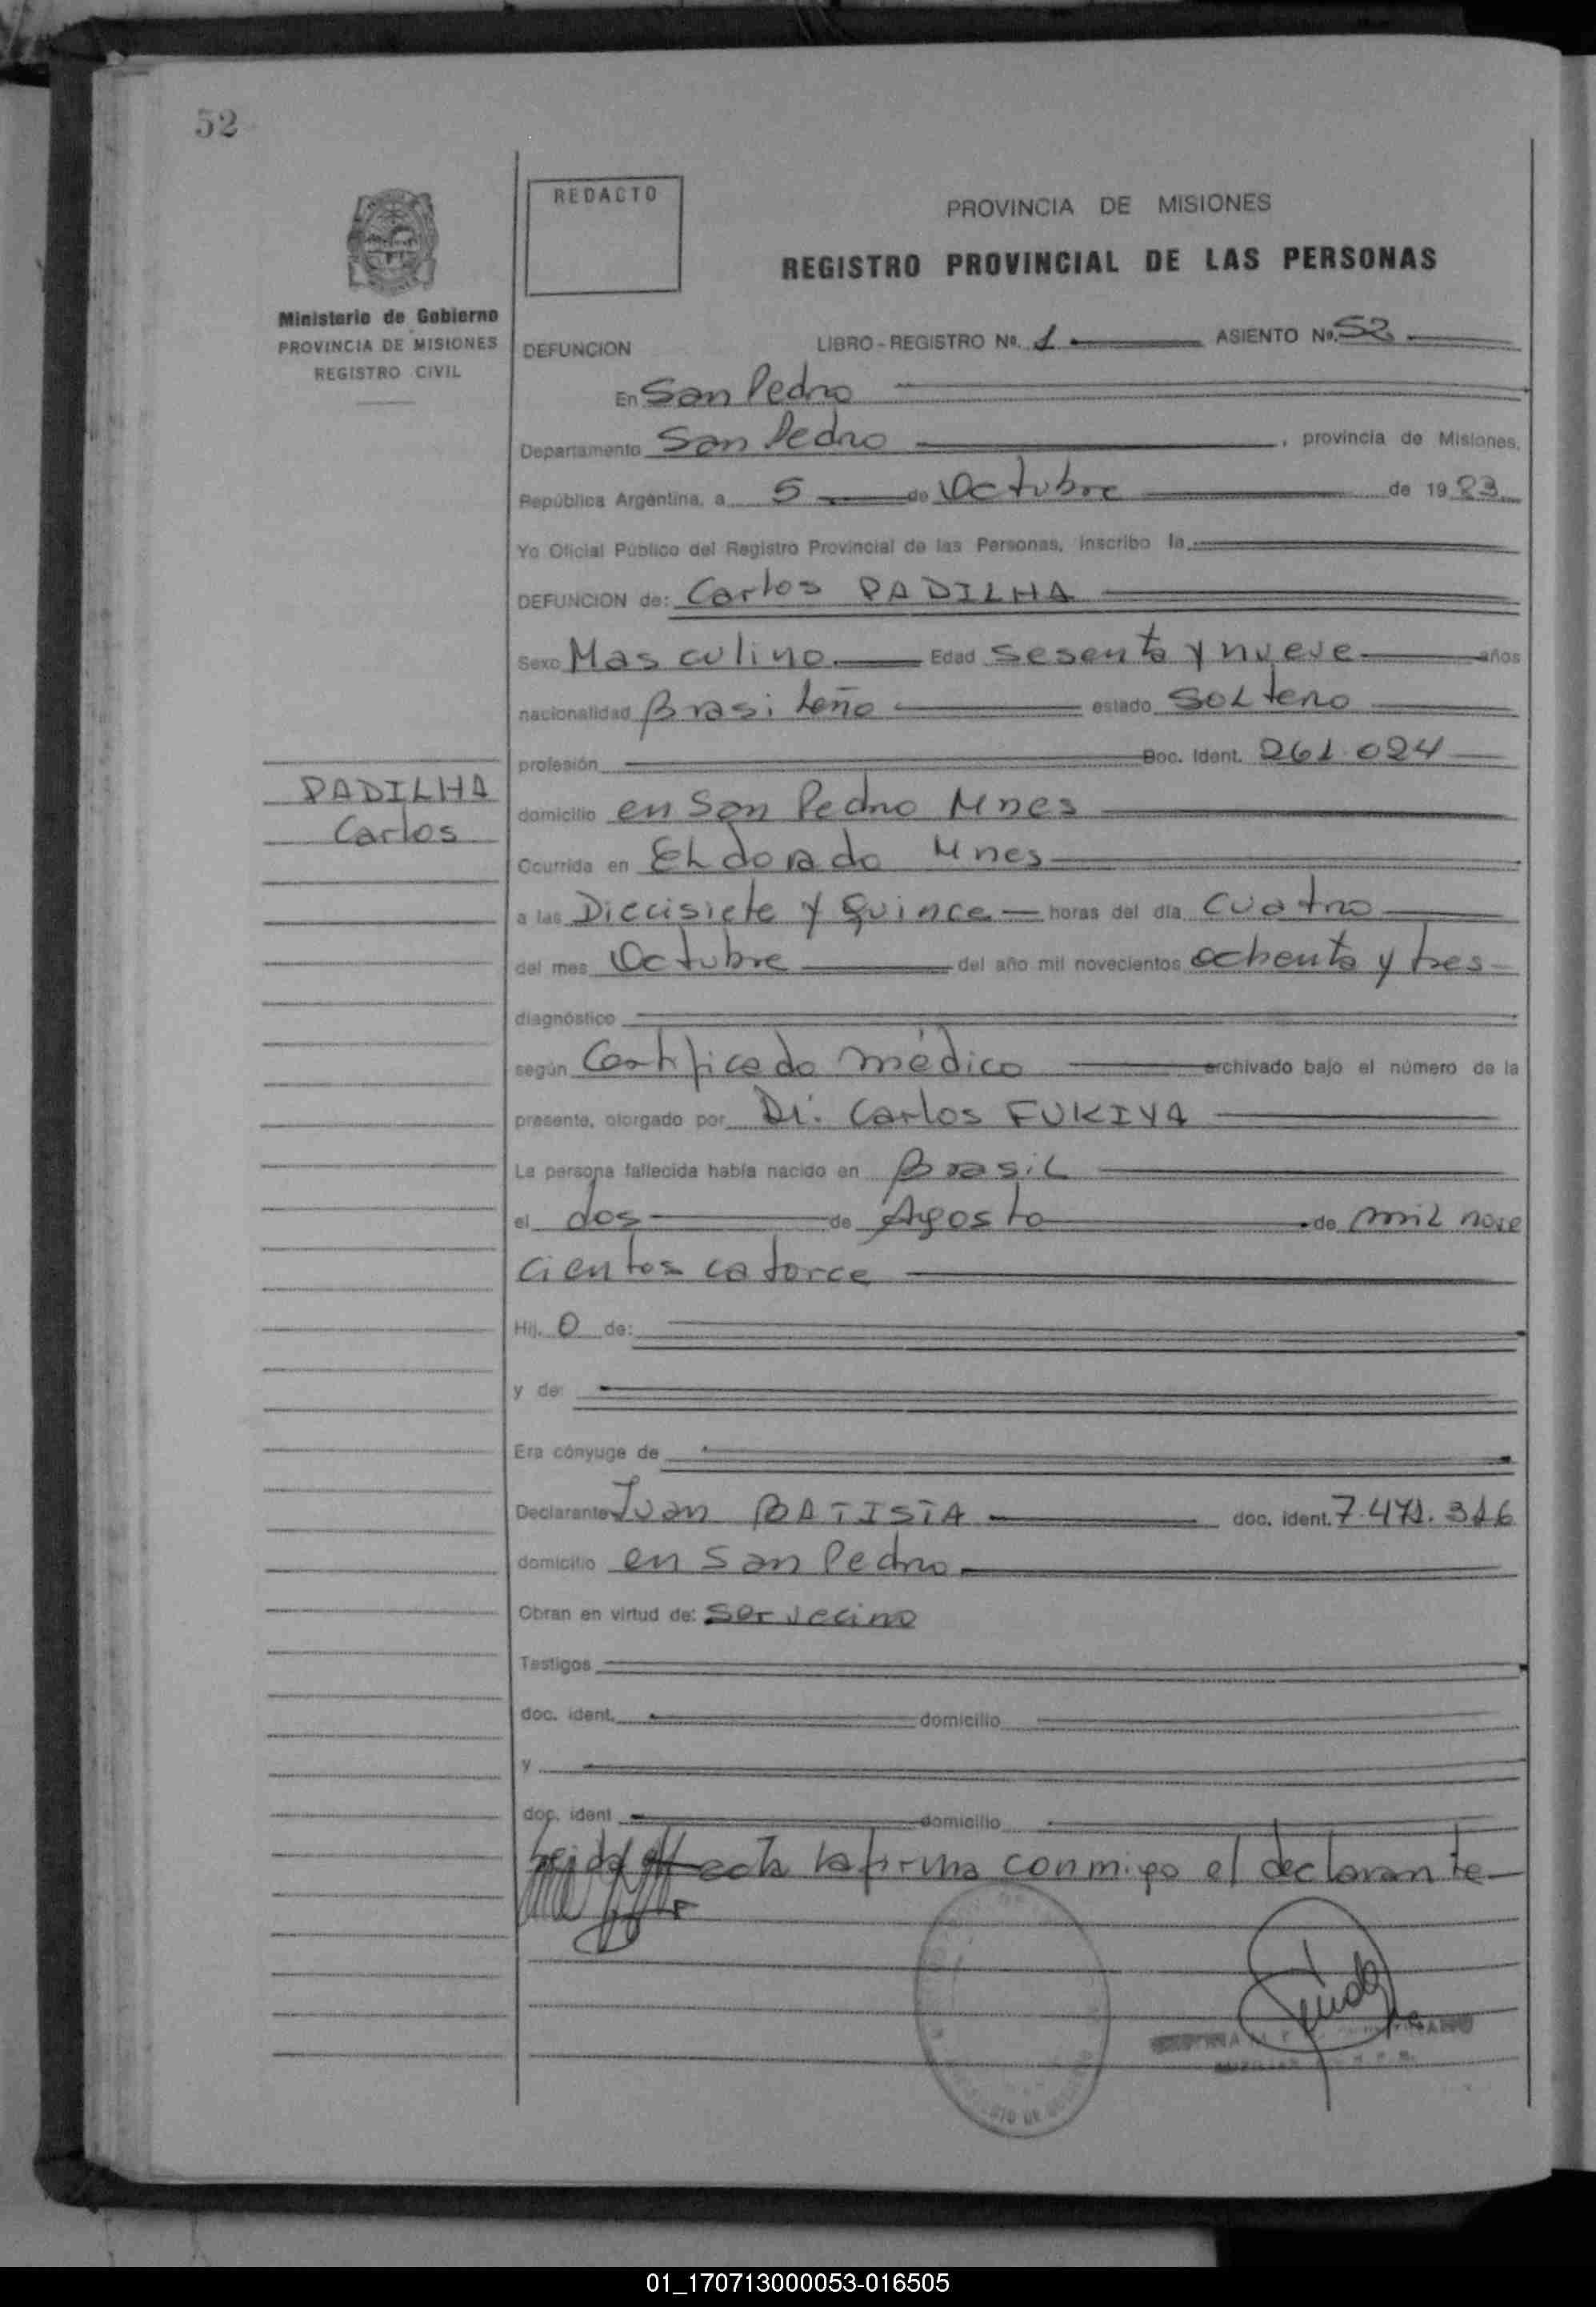 52
REDACTO
PROVINCIA DE MISIONES
REGISTRO PROVINCIAL DE LAS PERSONAS
Ministerio de Gobierno
PROVINCIA DE MISIONES
REGISTRO CIVIL
DEFUNCION LIBRO - REGISTRO Nº. 1 ASIENTO Nº. 52
En San Pedro
Departamento San Pedro, provincia de Misiones,
República Argentina, a 5 de Octubre de 1983
Yo Oficial Público del Registro Provincial de las Personas, inscribo la
DEFUNCION de: Carlos PADILHA
Sexo Masculino Edad sesenta y nueve años
nacionalidad Brasileño estado SOLtero
profesión Doc. Ident. 261.024
PADILHA
Carlos
domicilio en San Pedro Mnes
Ocurrida en ELdorado Mnes
a las Diecisiete y Quince horas del día cuatro
del mes Octubre del año mil novecientos ochenta y tres
diagnóstico
según Certificado médico archivado bajo el número de la
presente, otorgado por Dr. Carlos FUKIYA
La persona fallecida había nacido en BrasiL
el dos de Agosto de miL nove
cientos catorce
Hij. O de:
y de:
Era cónyuge de
Declarante Juan BATISTA doc. ident. 7.471.316
domicilio en San Pedro
Obran en virtud de: ser vecino
Testigos
doc. ident. domicilio
y
doc. ident domicilio
acta la firma conmigo el declarante
01_170713000053-016505